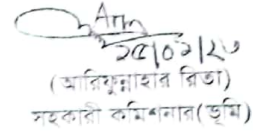 ২৫/০২/২৩
(আতিকুন্নাহার রিতা)
সহকারী কমিশনার(ভূমি)